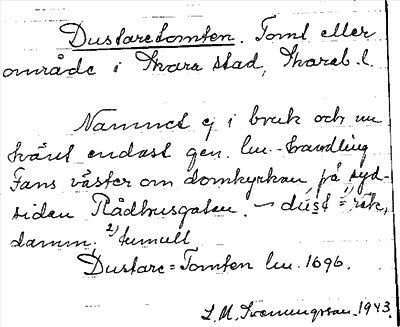 Dustaretomten. Tomt eller
område i Skara stad, Skarab. l.
Namnet ej i bruk och nu
känt endast gen. ln.-handling
Fans väster om domkyrkan på syd-
sidan Rådhusgatan. – dust = rök,
damm, 2) tumult
Dustare=Tomten ln. 1696.
L. M. Svenungsson. 1943.